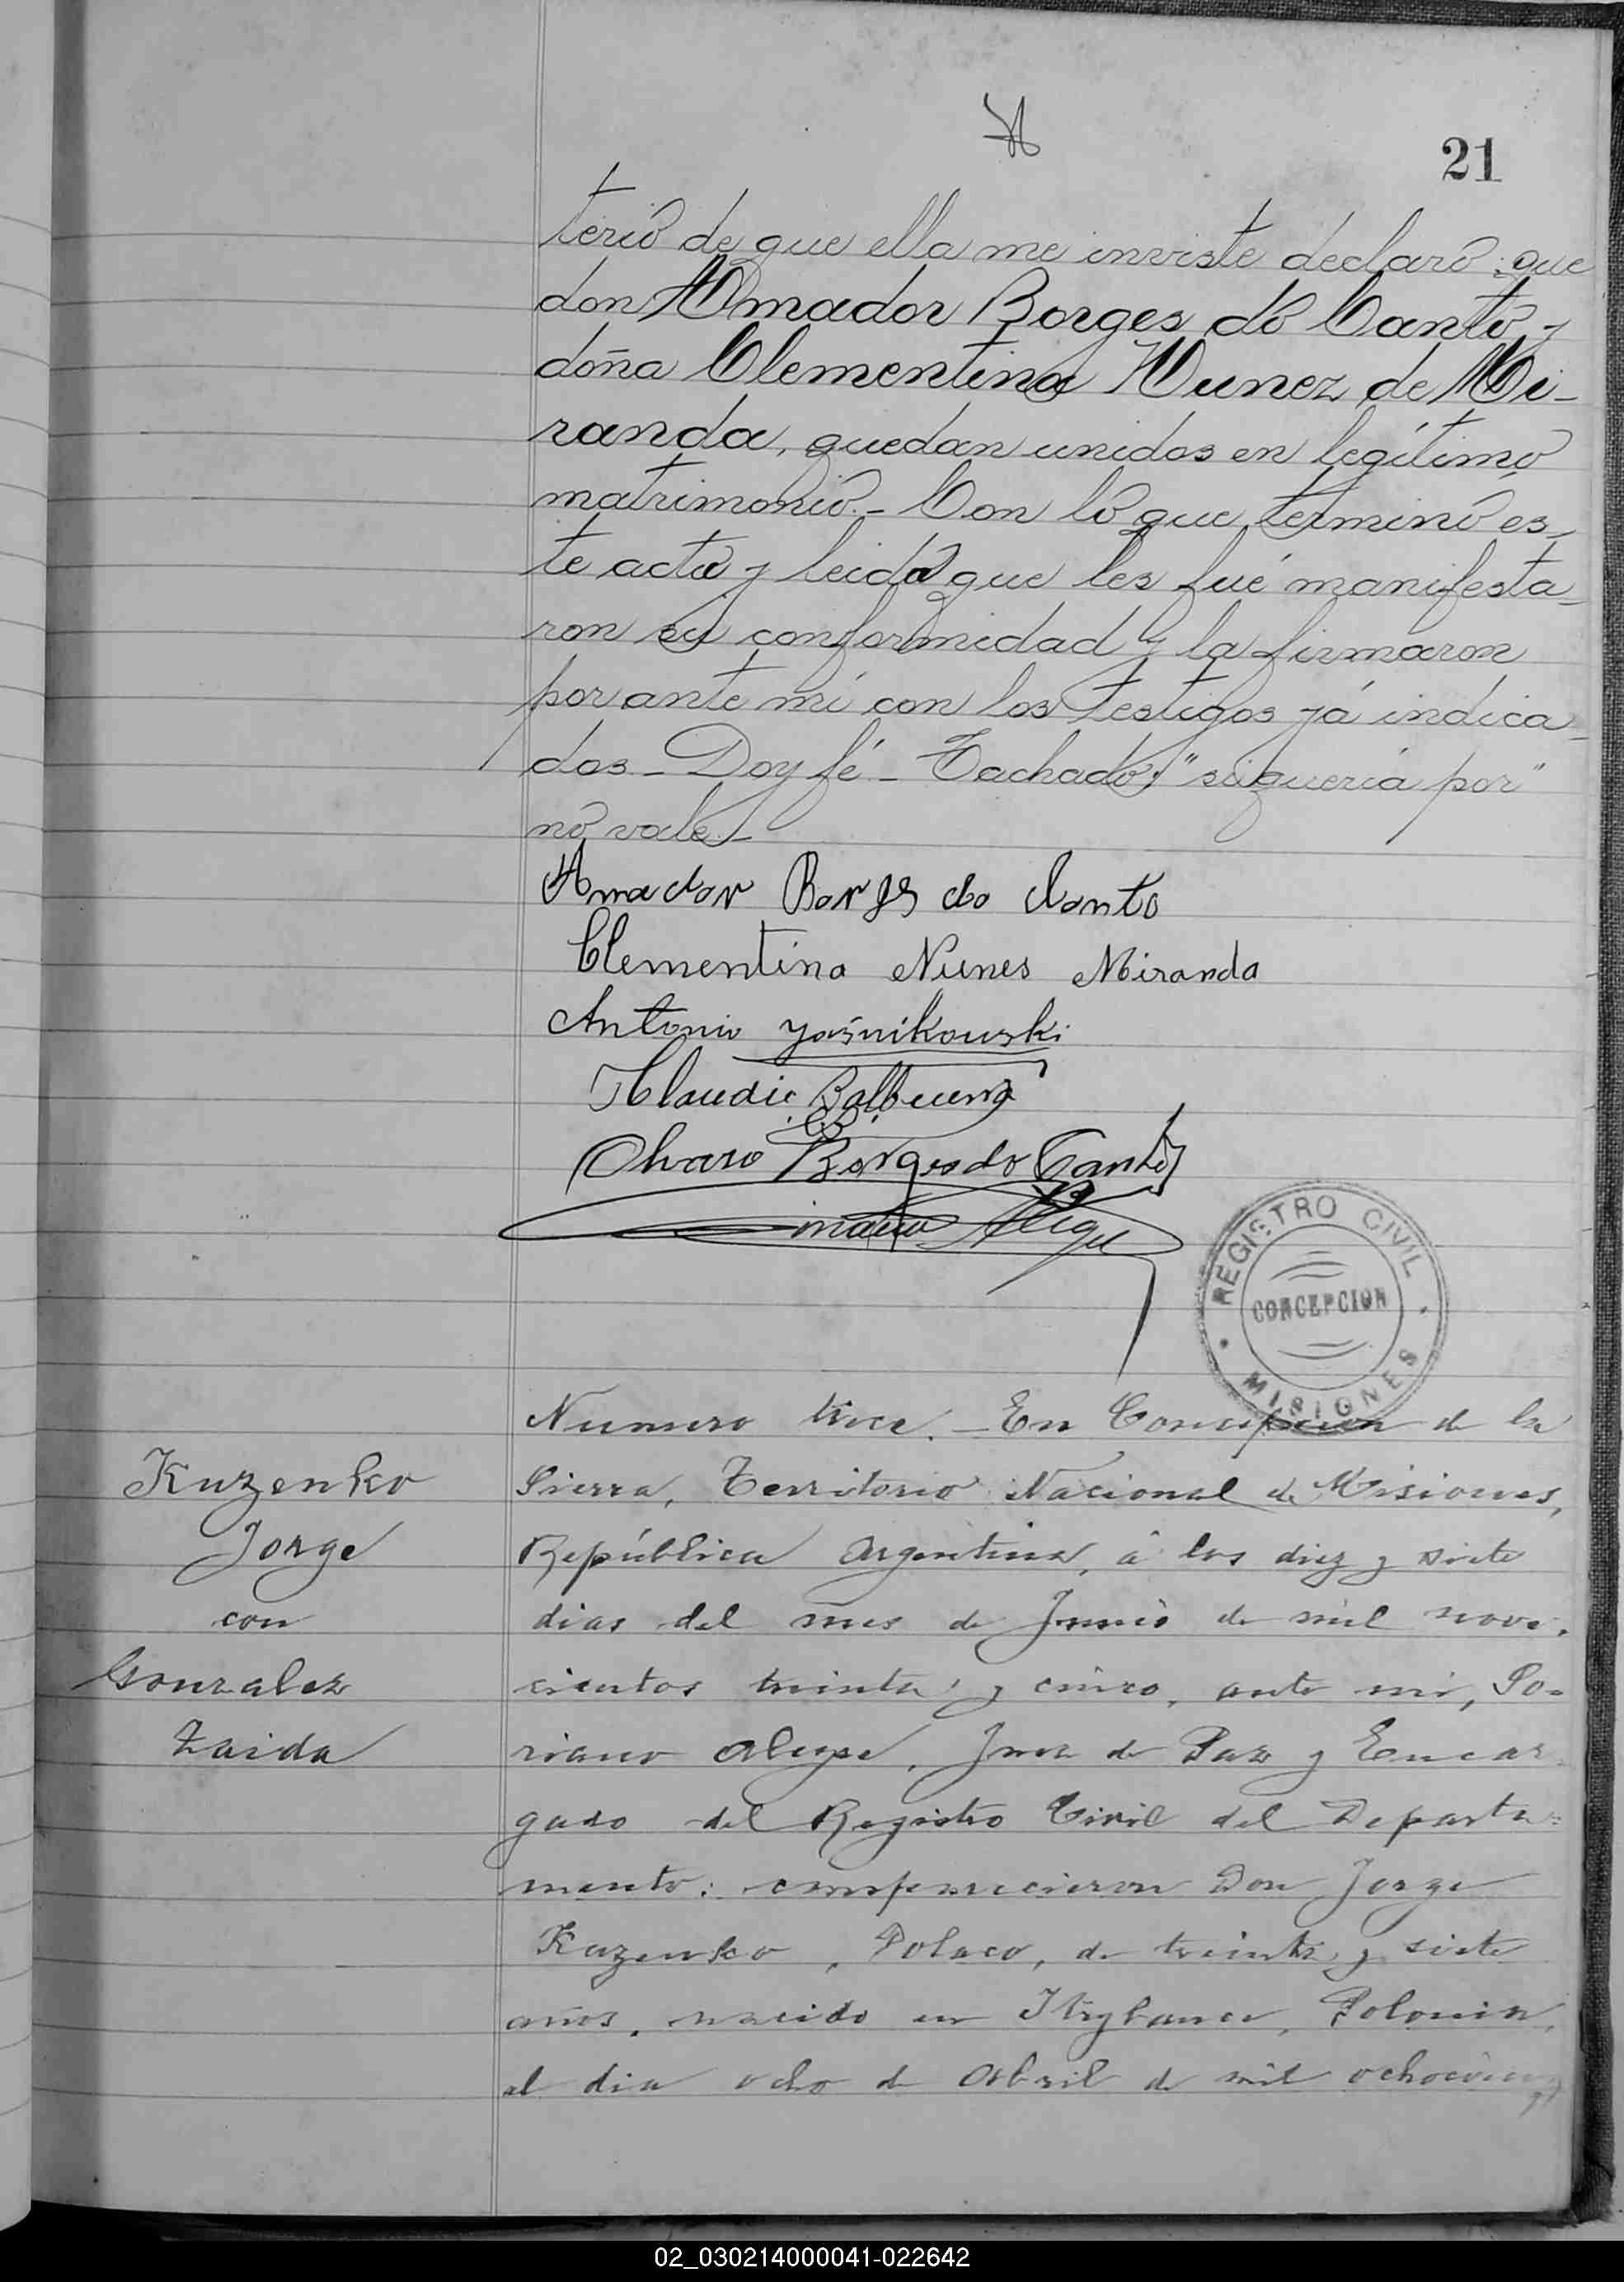 21
terio de que ella me inviste declaro que
don Amador Borges do Canto y
doña Clementina Nunez de Mi-
randa, quedan unidos en legítimo
matrimonio.- Con lo que terminó es-
te acta y leida que les fué manifesta-
ron su conformidad y la firmaron
por ante mí con los testigos yá indica-
dos - Doy fé - Tachado: "siqueria por"
no vale.-
Amador Borges do Canto
Clementina Nunes Miranda
Antonio Yasnikowski
Klaudio Balbuena
Alvaro Borges do Canto
REGISTRO CIVIL
CONCEPCION
MISIONES
Kuzenko
Jorge
con
Gonzalez
Zaida
Numero trece. - En Concepcion de la
Sierra, Territorio Nacional de Misiones,
República Argentina, á los diez y siete
dias del mes de Junio de mil nove-
cientos treinta y cinco, ante mi, So-
riano Alegre, Juez de Paz y Encar-
gado del Registro Civil del Departa-
mento: comparecieron Don Jorge
Kuzenko, Polaco, de treinta y siete
años, nacido en Polonia,
el dia ocho de Abril de mil ochocien
02_030214000041-022642